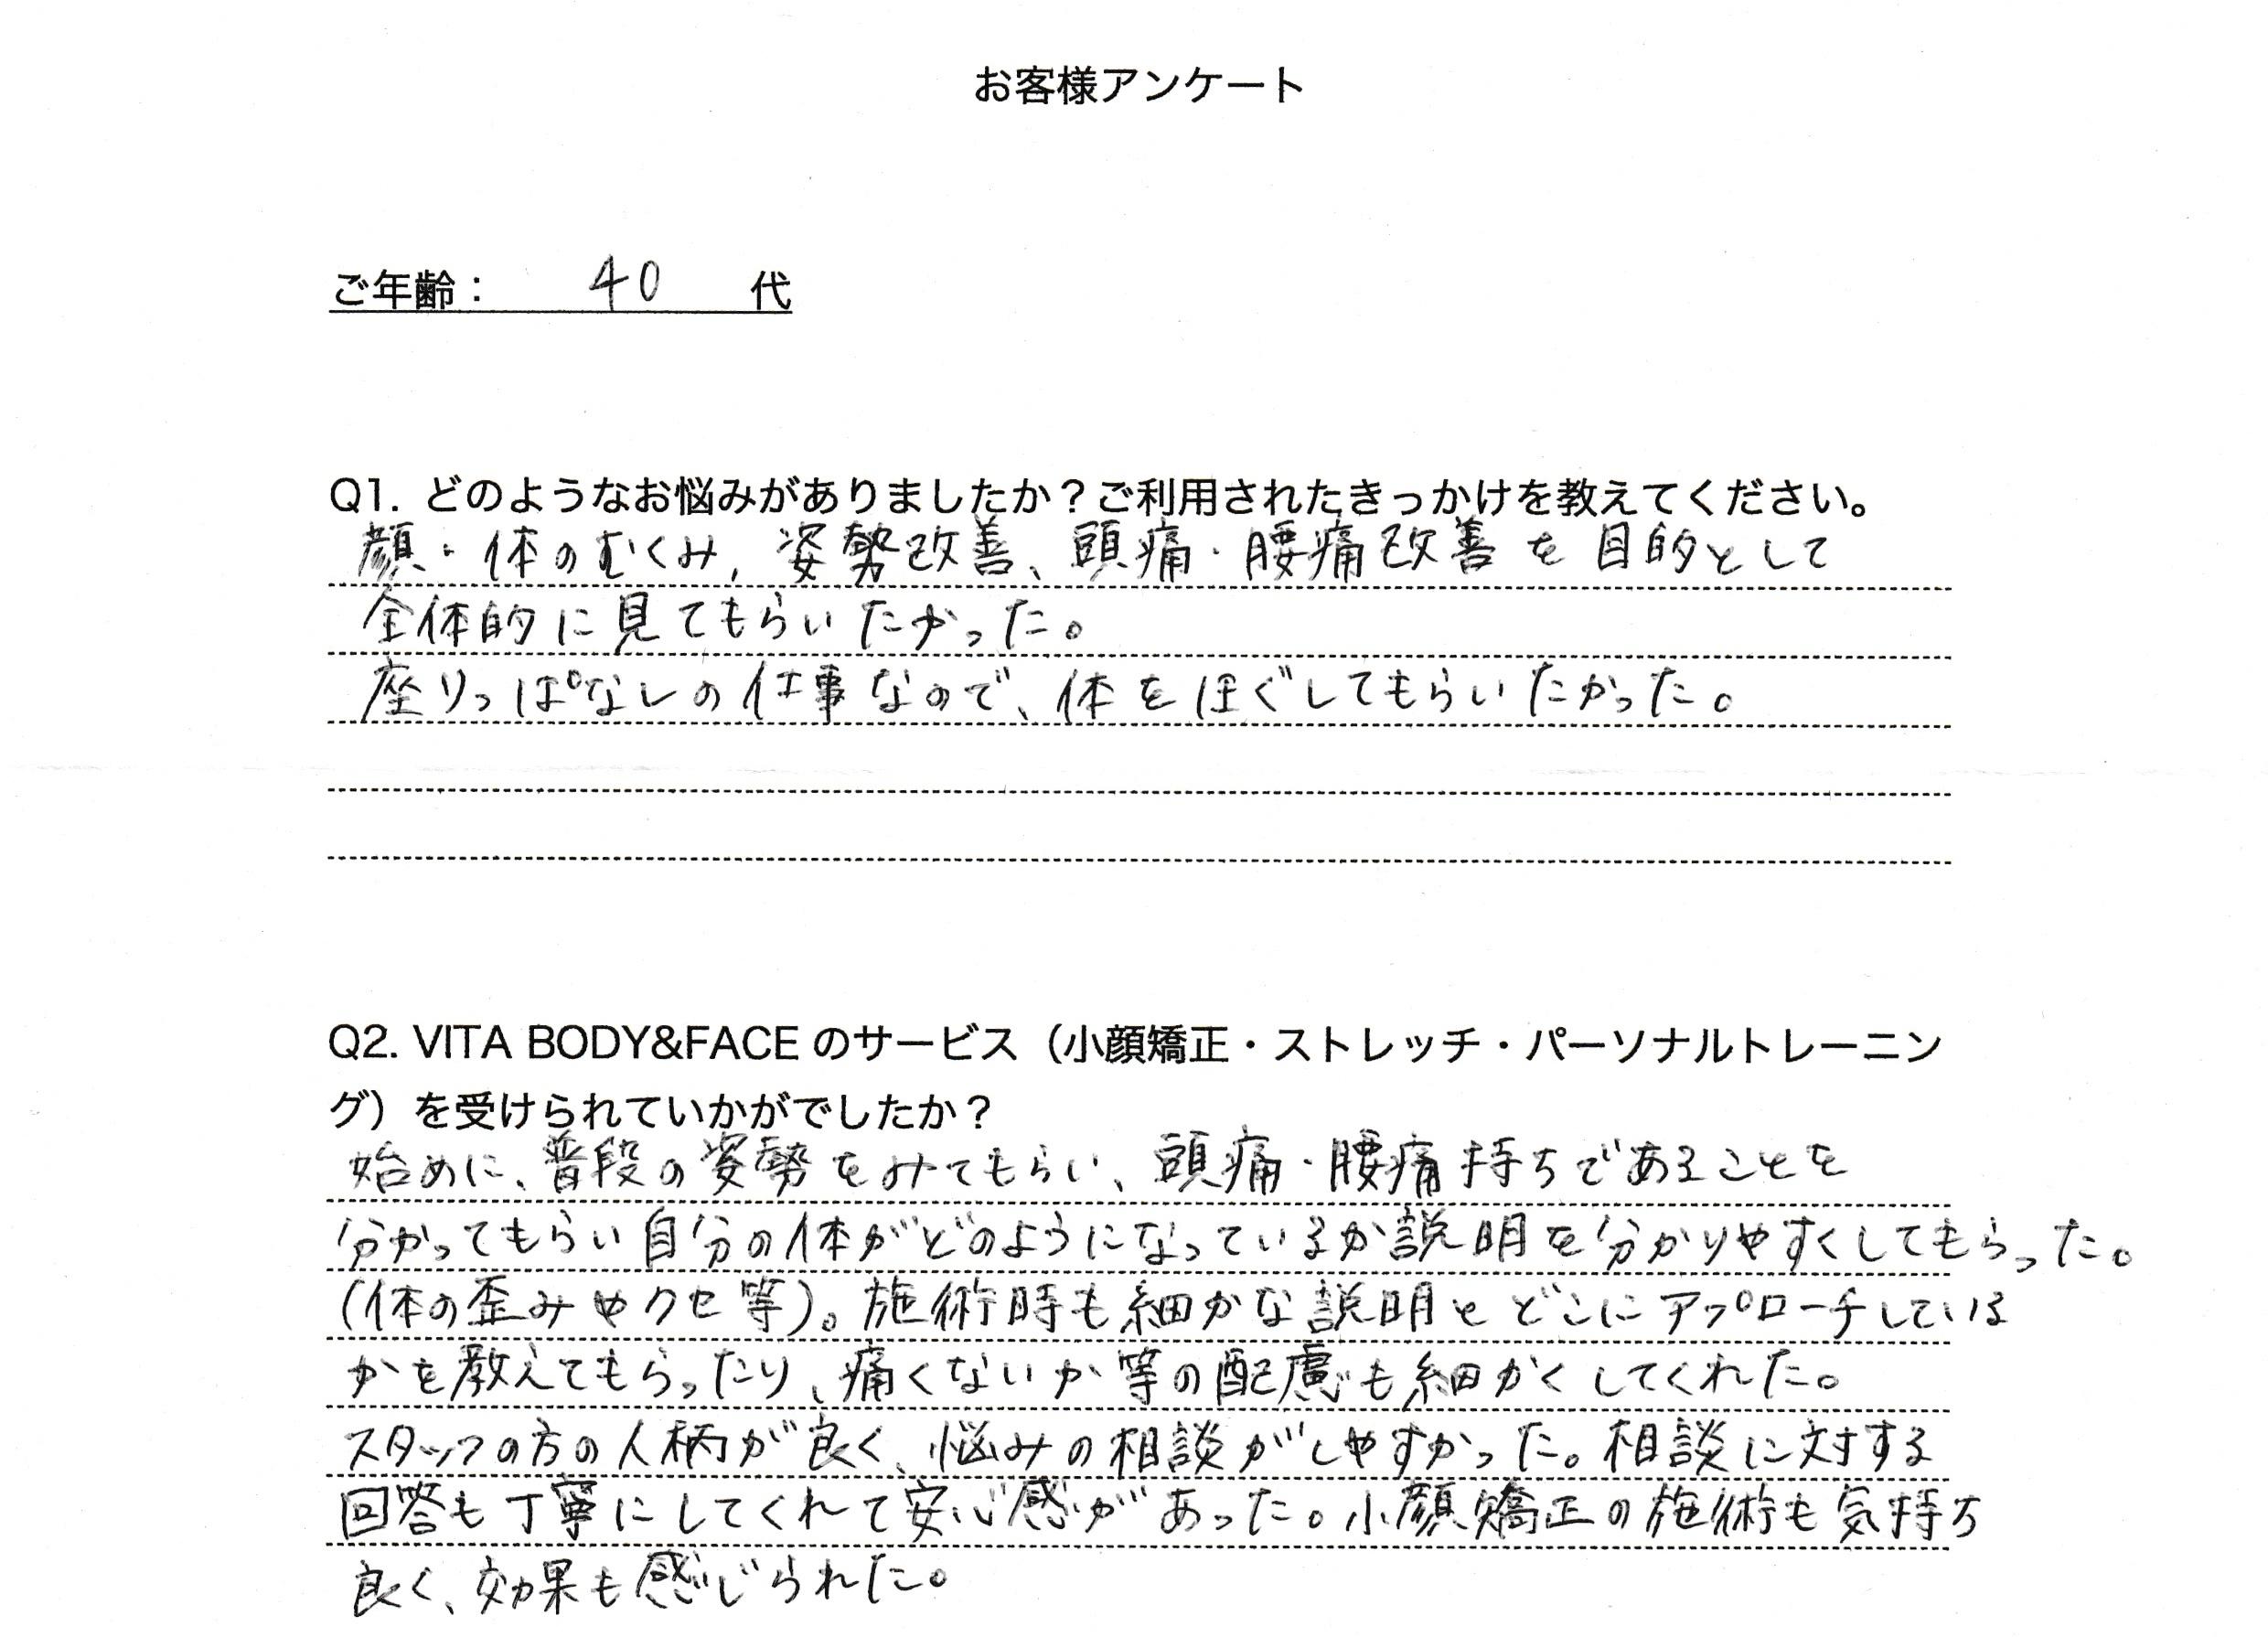 お客様アンケート
ご年齢： 40 代
Q1. どのようなお悩みがありましたか？ご利用されたきっかけを教えてください。
顔・体のむくみ, 姿勢改善、頭痛・腰痛改善を目的として
全体的に見てもらいたかった。
座りっぱなしの仕事なので、体をほぐしてもらいたかった。
Q2. VITA BODY&FACE のサービス（小顔矯正・ストレッチ・パーソナルトレーニン
グ）を受けられていかがでしたか？
始めに、普段の姿勢をみてもらい、頭痛・腰痛持ちであることを
分かってもらい自分の体がどのようになっているか説明を分かりやすくしてもらった。
(体の歪みやクセ等)。施術時も細かな説明とどこにアプローチしている
かを教えてもらったり、痛くないか等の配慮も細かくしてくれた。
スタッフの方の人柄が良く、悩みの相談がしやすかった。相談に対する
回答も丁寧にしてくれて安心感があった。小顔矯正の施術も気持ち
良く、効果も感じられた。